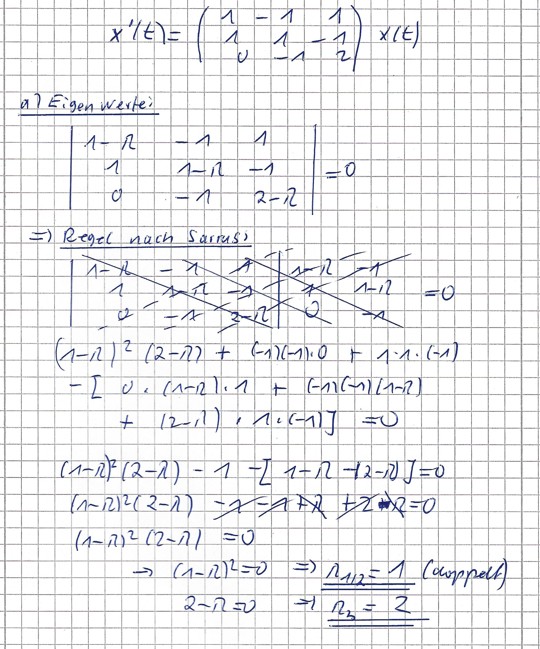 x'(t) = ( 1 -1 1
1 1 -1
0 -1 2 ) x(t)
a) Eigenwerte:
| 1-λ -1 1
1 1-λ -1
0 -1 2-λ | = 0
=> Regel nach Sarrus:
| 1-λ -1 1 | 1-λ -1
1 1-λ -1 | 1 1-λ = 0
0 -1 2-λ | 0 -1
(1-λ)² (2-λ) + (-1)(-1)·0 + 1·1·(-1)
- [ 0 · (1-λ) · 1 + (-1)(-1)(1-λ)
+ (2-λ) · 1 · (-1) ] = 0
(1-λ)² (2-λ) - 1 - [ 1-λ -(2-λ) ] = 0
(1-λ)² (2-λ) - 1 - 1 + λ + 2 - λ = 0
(1-λ)² (2-λ) = 0
→ (1-λ)² = 0 => λ1/2 = 1 (doppelt)
2-λ = 0 => λ3 = 2